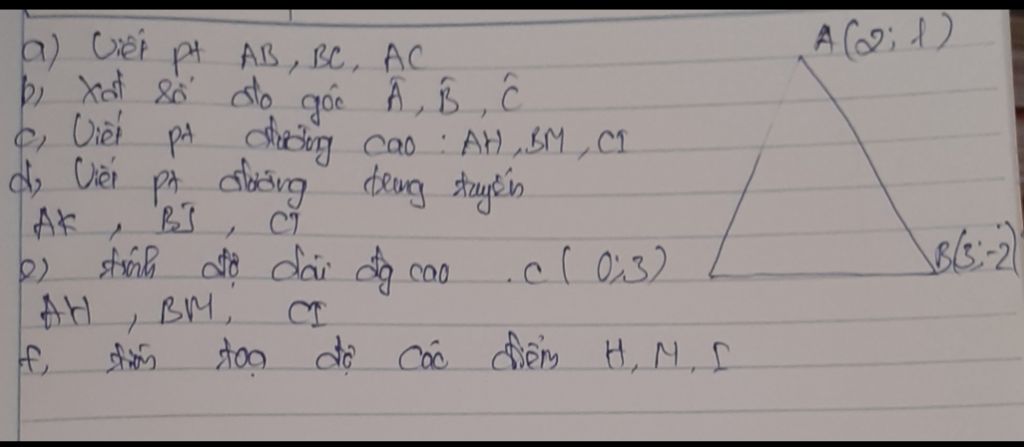 A(2; 1)
a) Viết pt AB, BC, AC
b, Xđ số đo góc Â, B̂, Ĉ
c, Viết pt đường cao : AH, BM, CI
d, Viết pt đường trung tuyến
AK, BJ, CJ
B(3; -2)
e) tính độ dài đg cao . C(0; 3)
AH, BM, CI
f, tìm toạ độ các điểm H, M, I